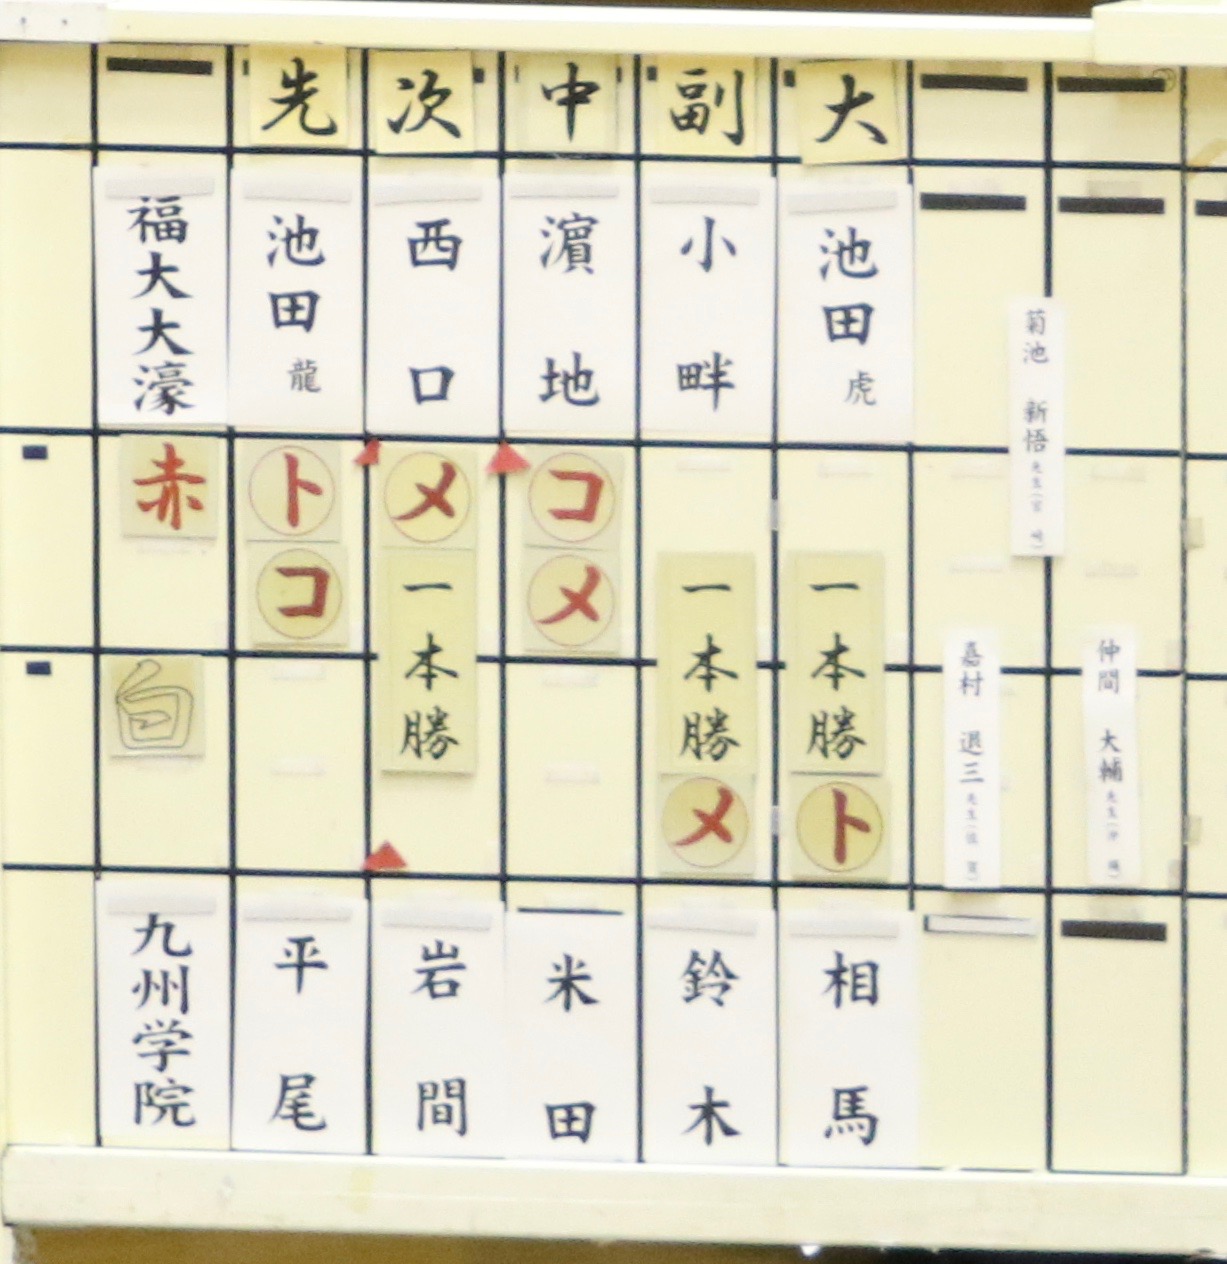 先 次 中 副 大
福大大濠
池田 龍
西口
濵地
小畔
池田 虎
赤
ト コ
メ 一本勝
コ メ
一本勝 メ
一本勝 ト
白
九州学院
平尾
岩間
米田
鈴木
相馬
菊池 新悟 先生
嘉村 選三 先生
仲間 大輔 先生